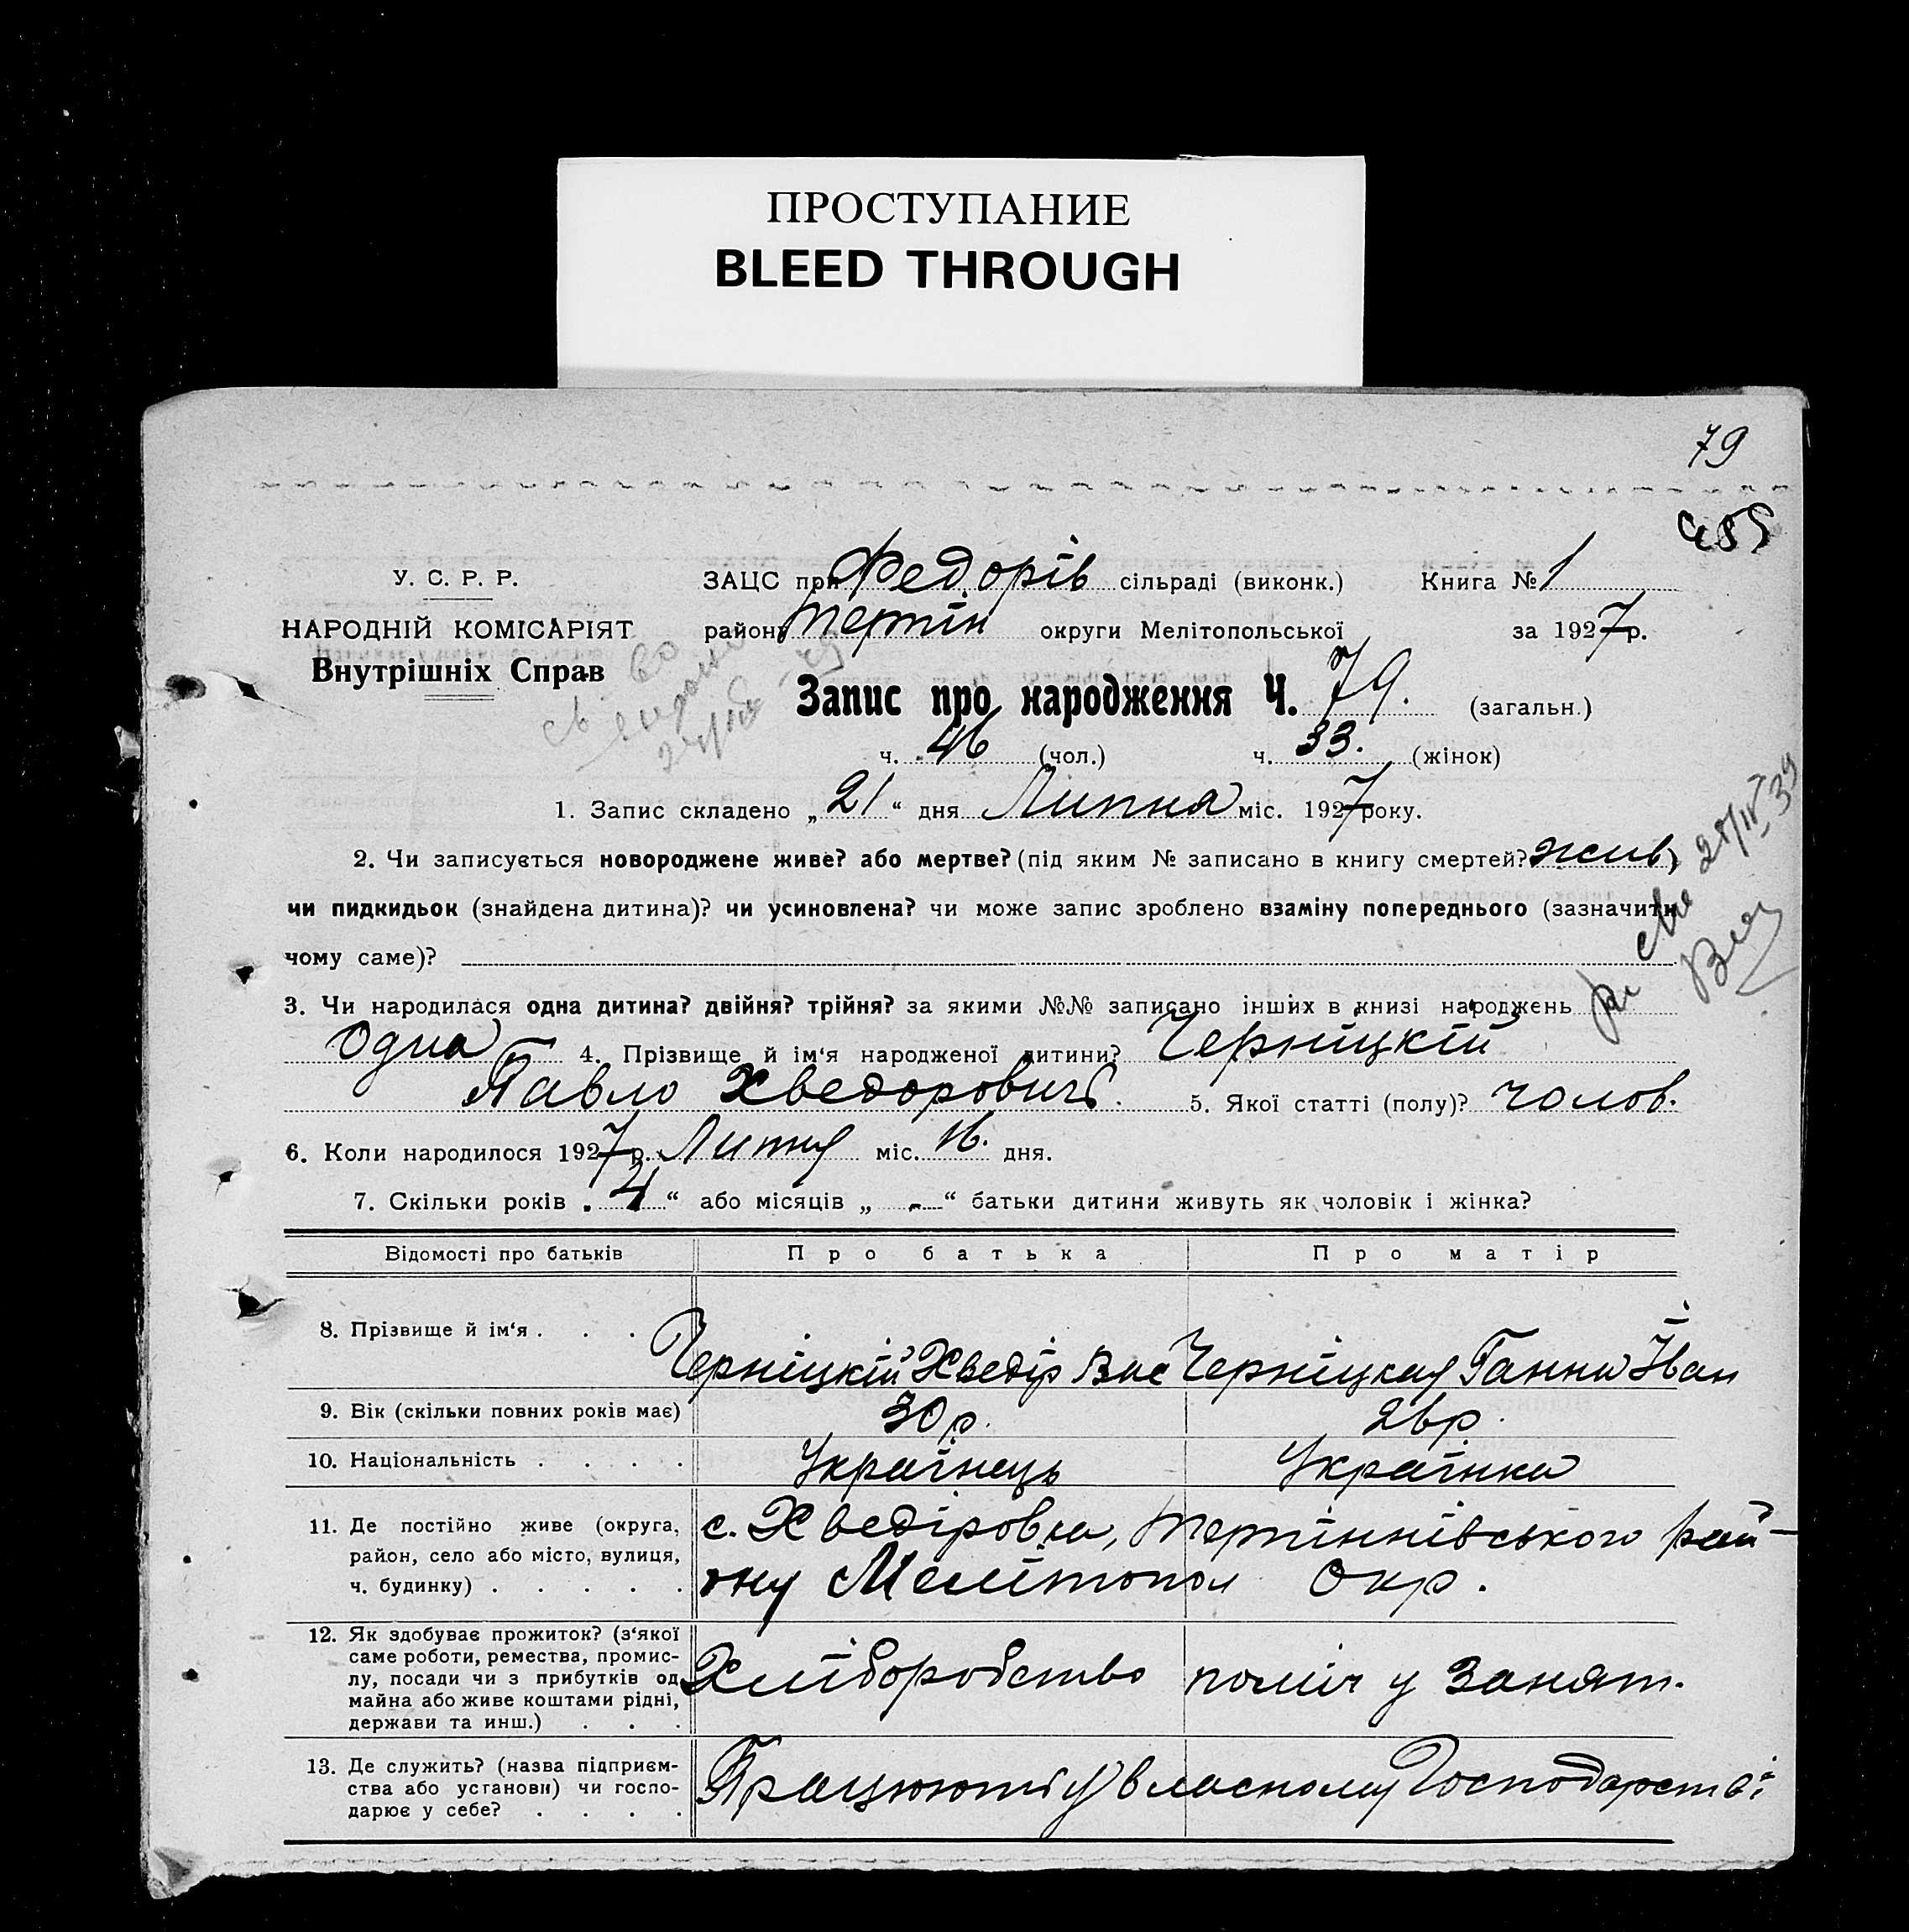 ПРОСТУПАНИЕ
BLEED THROUGH
79
455
У. С. Р. Р.
НАРОДНІЙ КОМІСАРІЯТ
Внутрішніх Справ
ЗАЦС при Федорів сільраді (виконк.) Книга № 1
району Терпін округи Мелітопольської за 1927 р.
Запис про народження Ч. 79. (загальн.)
ч. 46 (чол.) ч. 33. (жінок)
1. Запис складено „21“ дня Липня міс. 1927 року.
2. Чи записується новороджене живе? або мертве? (під яким № записано в книгу смертей? жив)
чи пидкидьок (знайдена дитина)? чи усиновлена? чи може запис зроблено взаміну попереднього (зазначити
чому саме)?
3. Чи народилася одна дитина? двійня? трійня? за якими №№ записано інших в книзі народжень
Одна 4. Прізвище й ім‘я народженої дитини? Черніцкій
Павло Хведорович. 5. Якої статті (полу)? чолов.
6. Коли народилося 1927 р. міс. 16. дня.
7. Скільки років „4“ або місяців „-“ батьки дитини живуть як чоловік і жінка?
Відомості про батьків Про батька Про матір
8. Прізвище й ім‘я . . . Черніцкій Хведір Вас Черніцкая Ганна Іван
9. Вік (скільки повних років має) 30 р. 26 р.
10. Національність . . . . Українець Українка
11. Де постійно живе (округа,
район, село або місто, вулиця,
ч. будинку) . . . . .
с. Хведіровка, Терпіннівського рай-
ону Мелітопол Окр.
12. Як здобуває прожиток? (з‘якої
саме роботи, ремества, промис-
лу, посади чи з прибутків од
майна або живе коштами рідні,
держави та инш.) . . .
Хліборобство поміч у занят.
13. Де служить? (назва підприєм-
ства або установи) чи госпо-
дарює у себе? . . . .
Працюють у власному Господарстві